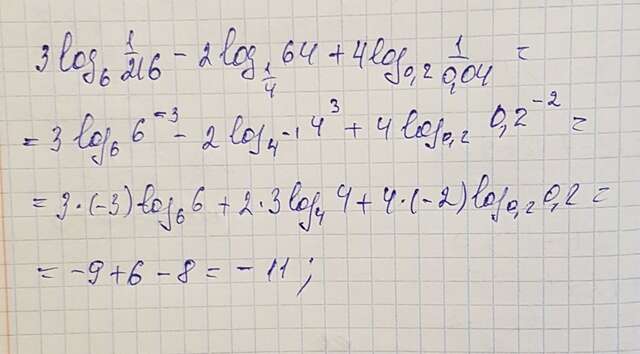 3 log₆ 1/216 − 2 log_{1/4} 64 + 4 log_{0,2} 1/0,04 =
= 3 log₆ 6⁻³ − 2 log_{4⁻¹} 4³ + 4 log_{0,2} 0,2⁻² =
= 3·(−3) log₆ 6 + 2·3 log₄ 4 + 4·(−2) log_{0,2} 0,2 =
= −9 + 6 − 8 = −11 ;